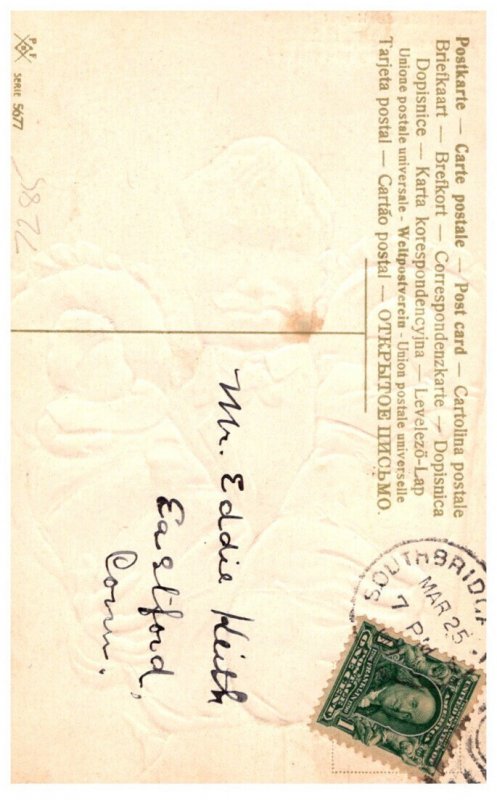 Postkarte — Carte postale — Post card — Cartolina postale
Briefkaart — Brefkort — Correspondenzkarte — Dopisnica
Dopisnice — Karta korespondencyjna — Levelező-Lap
Unione postale universale - Weltpostverein - Union postale universelle
Tarjeta postal — Cartáo postal — ОТКРЫТОЕ ПИСЬМО.
SOUTHBRIDG
MAR 25
7 P
1
Mr. Eddie Keith
Eastford,
Conn.
P F
SERIE 5677